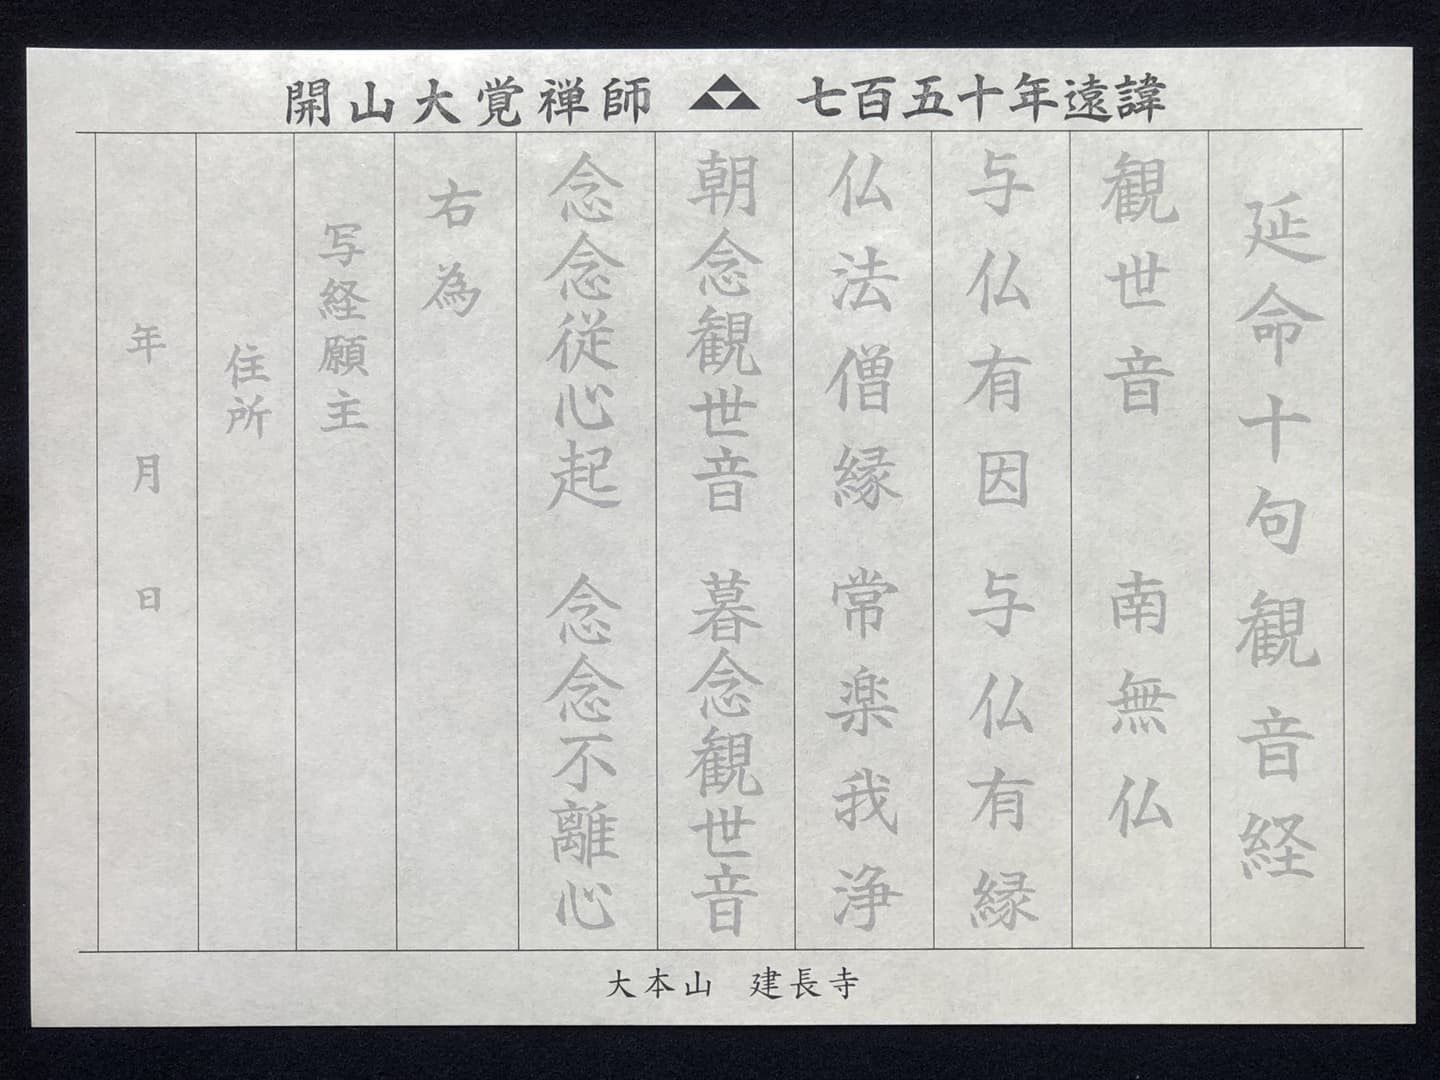 開山大覚禅師 七百五十年遠諱
延命十句観音経
観世音 南無仏
与仏有因 与仏有縁
仏法僧縁 常楽我浄
朝念観世音 暮念観世音
念念従心起 念念不離心
右為
写経願主
住所
年 月 日
大本山 建長寺